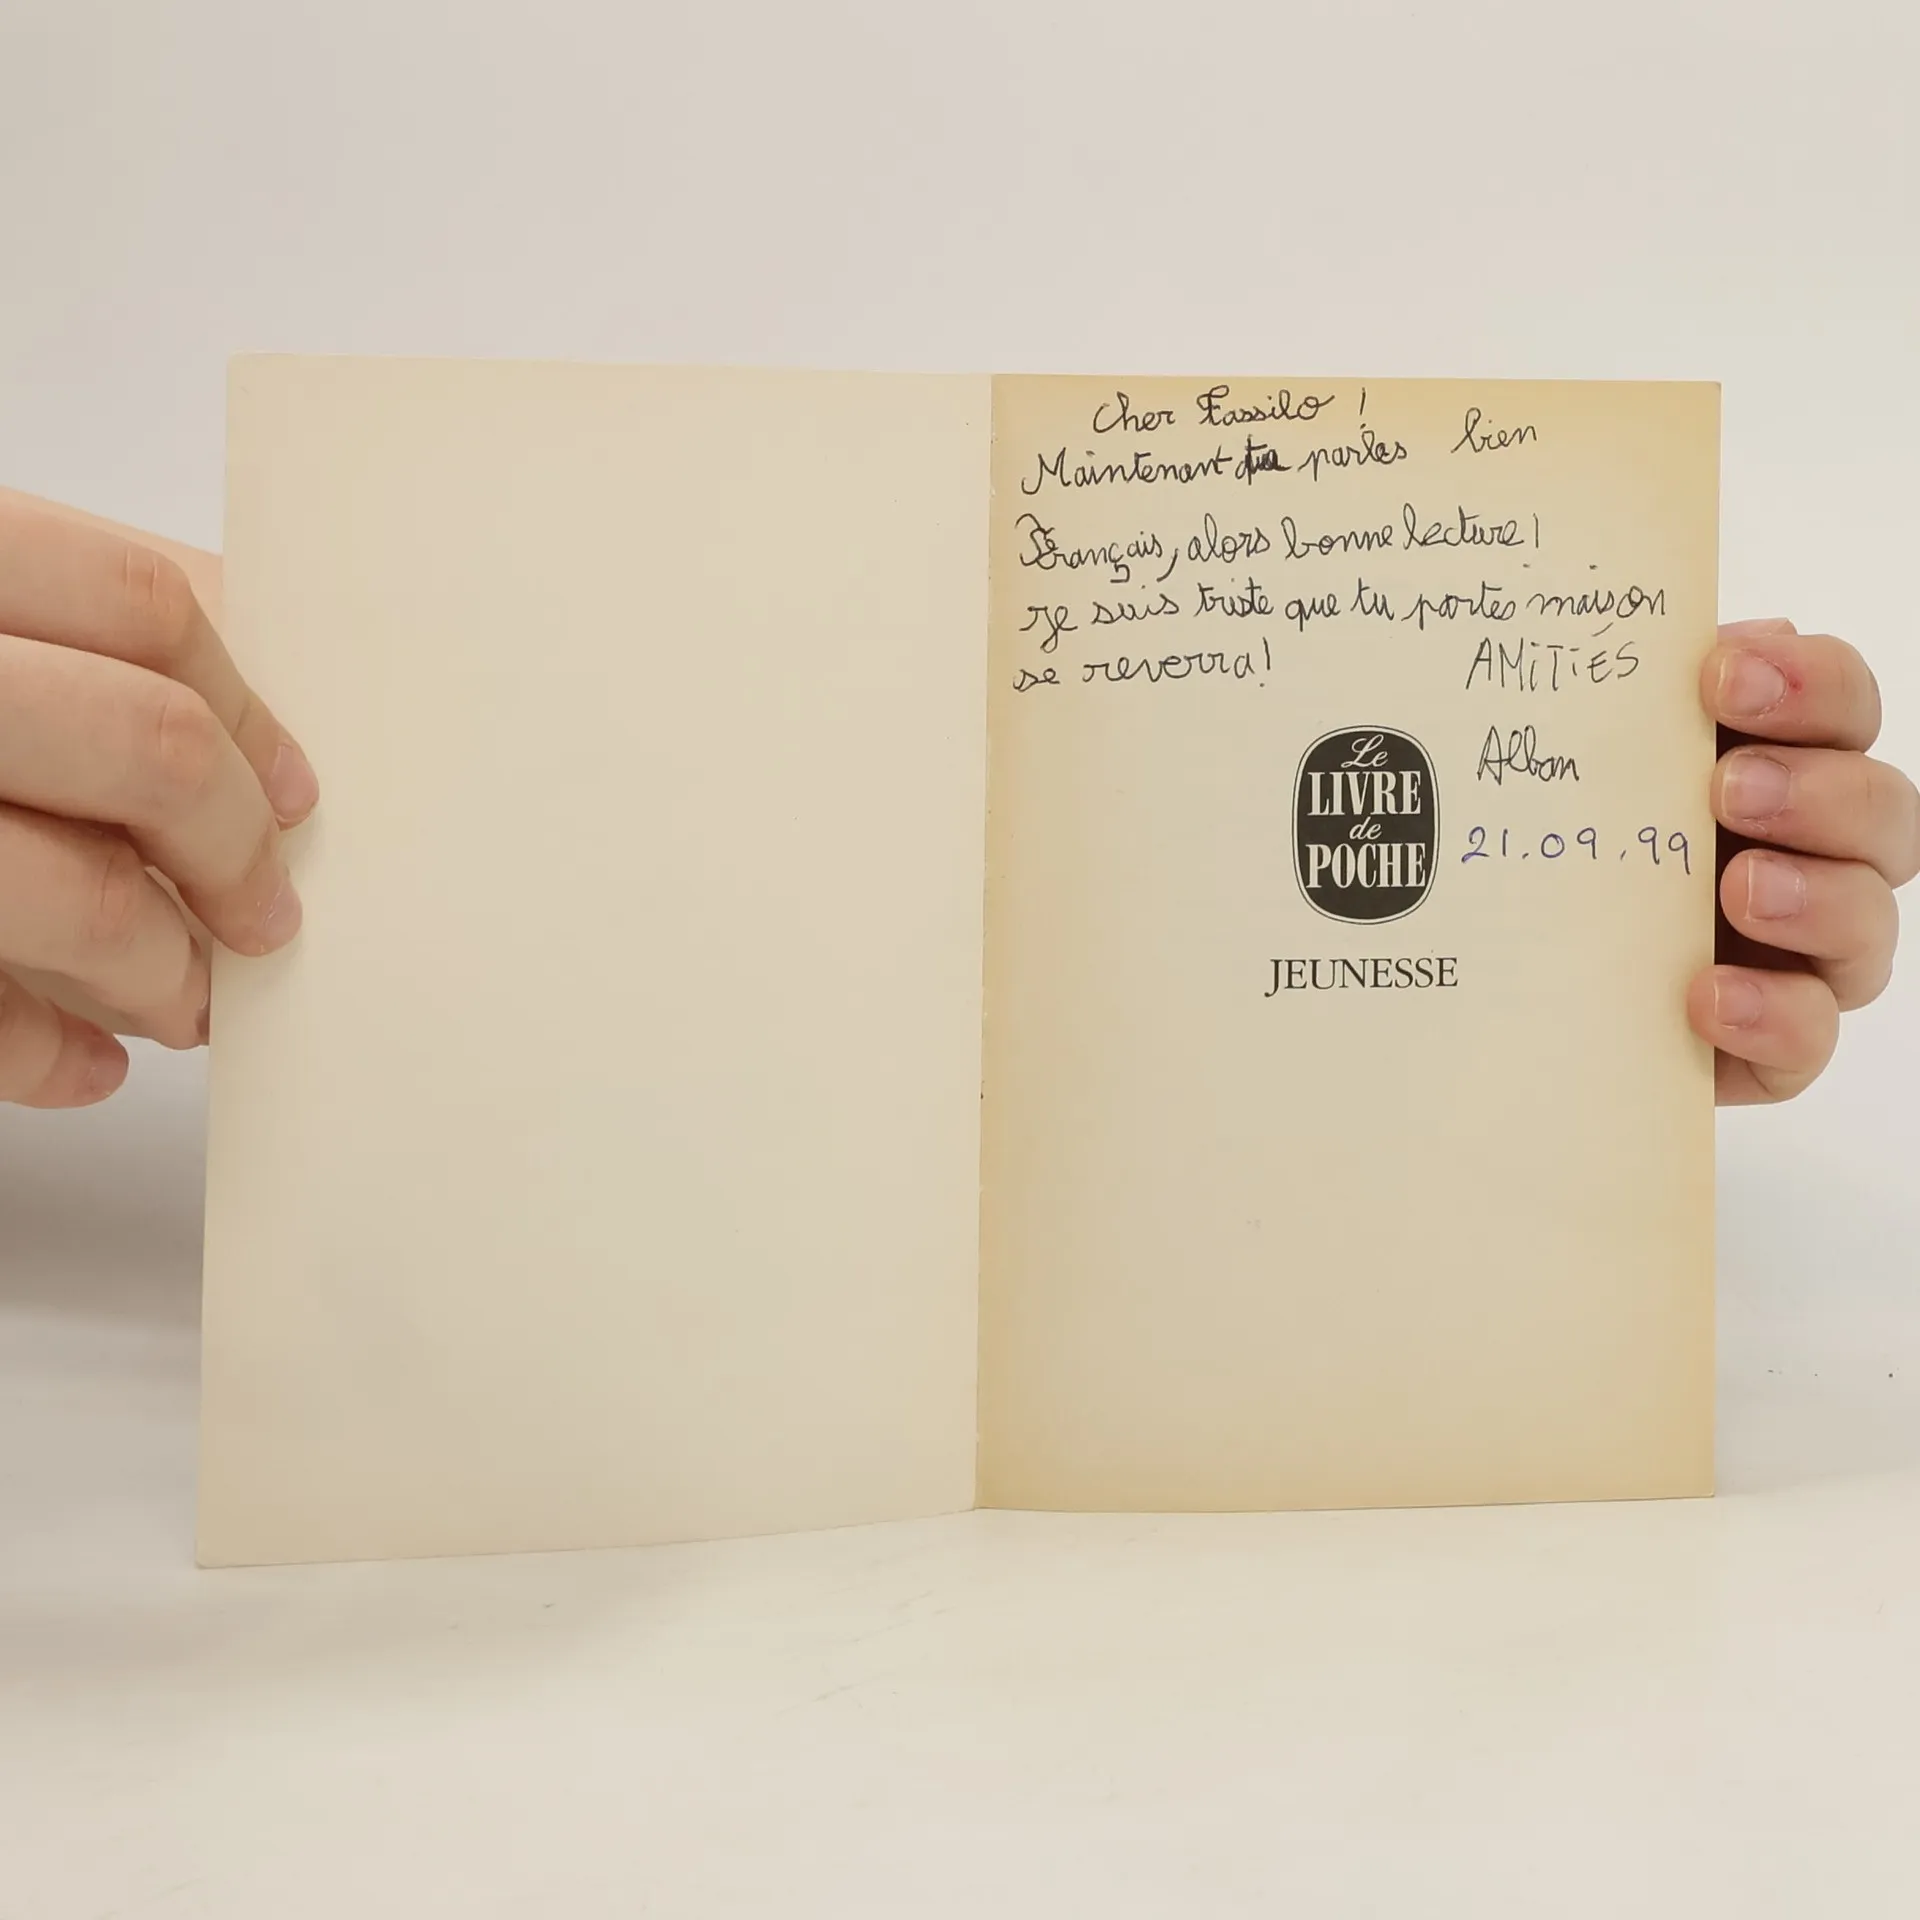 Cher Tassilo !
Maintenant tu parles bien
Français, alors bonne lecture!
Je suis triste que tu partes maison
se reverra!
AMiTiÉS
Alban
21.09.99
Le
LIVRE
de
POCHE
JEUNESSE